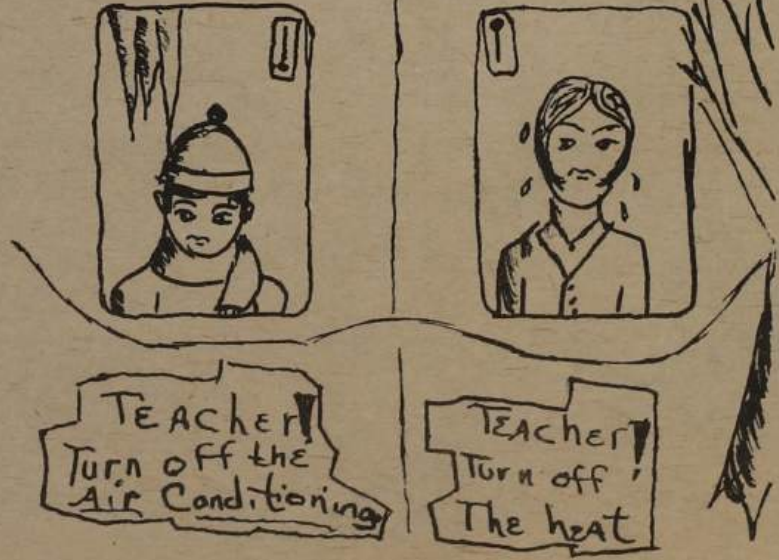 TEAcher!
Turn off the
Air Conditioning
TEAcher!
Turn off!
The heat